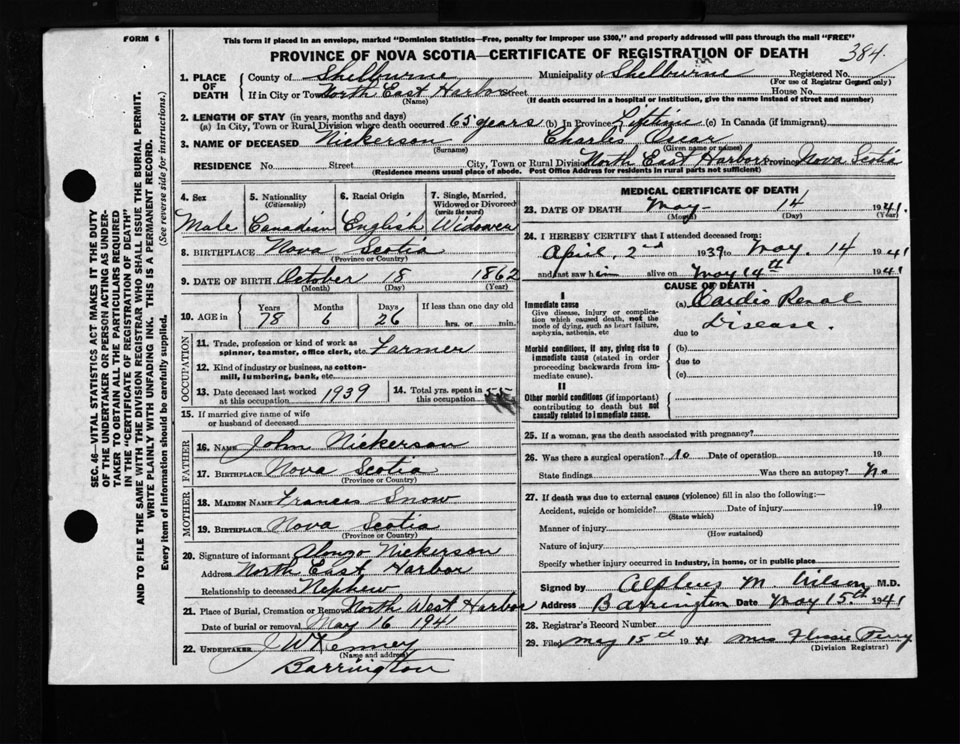 FORM 6
This form if placed in an envelope, marked "Dominion Statistics—Free, penalty for improper use $300," and properly addressed will pass through the mail "FREE"
PROVINCE OF NOVA SCOTIA—CERTIFICATE OF REGISTRATION OF DEATH
384
SEC. 46—VITAL STATISTICS ACT MAKES IT THE DUTY
OF THE UNDERTAKER OR PERSON ACTING AS UNDER-
TAKER TO OBTAIN ALL THE PARTICULARS REQUIRED
IN THE "CERTIFICATE OF REGISTRATION OF DEATH"
AND TO FILE THE SAME WITH THE DIVISION REGISTRAR WHO SHALL ISSUE THE BURIAL PERMIT.
WRITE PLAINLY WITH UNFADING INK. THIS IS A PERMANENT RECORD.
Every item of Information should be carefully supplied. (See reverse side for instructions.)
1. PLACE OF DEATH
County of Shelburne Municipality of Shelburne Registered No.
(For use of Registrar General only)
If in City or Town North East Harbor Street House No.
(Name) (If death occurred in a hospital or institution, give the name instead of street and number)
2. LENGTH OF STAY (in years, months and days)
(a) In City, Town or Rural Division where death occurred 65 years (b) In Province Lifetime (c) In Canada (if immigrant)
3. NAME OF DECEASED Nickerson Charles Oscar
(Surname) (Given name or names)
RESIDENCE No. Street City, Town or Rural Division North East Harbor Province Nova Scotia
(Residence means usual place of abode. Post Office Address for residents in rural parts not sufficient)
4. Sex
Male
5. Nationality
(Citizenship)
Canadian
6. Racial Origin
English
7. Single, Married,
Widowed or Divorced
(write the word)
Widower
8. BIRTHPLACE Nova Scotia
(Province or Country)
9. DATE OF BIRTH October 18 1862
(Month) (Day) (Year)
10. AGE in
Years 78
Months 6
Days 26
If less than one day old
hrs. or min.
OCCUPATION
11. Trade, profession or kind of work as
spinner, teamster, office clerk, etc. Farmer
12. Kind of industry or business, as cotton-
mill, lumbering, bank, etc.
13. Date deceased last worked
at this occupation 1939
14. Total yrs. spent in
this occupation
15. If married give name of wife
or husband of deceased
FATHER
16. NAME John Nickerson
17. BIRTHPLACE Nova Scotia
(Province or Country)
MOTHER
18. MAIDEN NAME Frances Snow
19. BIRTHPLACE Nova Scotia
(Province or Country)
20. Signature of informant Alonzo Nickerson
Address North East Harbor
Relationship to deceased Nephew
21. Place of Burial, Cremation or Removal North West Harbor
Date of burial or removal May 16 1941
22. UNDERTAKER J W Kenney
(Name and address)
Barrington
MEDICAL CERTIFICATE OF DEATH
23. DATE OF DEATH May 14 1941.
(Month) (Day) (Year)
24. I HEREBY CERTIFY that I attended deceased from:
April, 2nd 1939 to May. 14 1941
and last saw him alive on May 14th 1941
CAUSE OF DEATH
I
Immediate cause
Give disease, injury or complica-
tion which caused death, not the
mode of dying, such as heart failure,
asphyxia, asthenia, etc
(a) Cardio Renal
due to Disease.
Morbid conditions, if any, giving rise to
immediate cause (stated in order
proceeding backwards from im-
mediate cause).
(b)
due to
(c)
II
Other morbid conditions (if important)
contributing to death but not
causally related to immediate cause.
25. If a woman, was the death associated with pregnancy?
26. Was there a surgical operation? no Date of operation 19
State findings Was there an autopsy? No
27. If death was due to external causes (violence) fill in also the following:—
Accident, suicide or homicide? Date of injury 19
(State which)
Manner of injury
(How sustained)
Nature of injury
Specify whether injury occurred in Industry, in home, or in public place
Signed by Alpheus M. Wilson M.D.
Address Barrington Date May 15th 1941
28. Registrar's Record Number
29. Filed May 15th 1941 Mrs Perry
(Division Registrar)